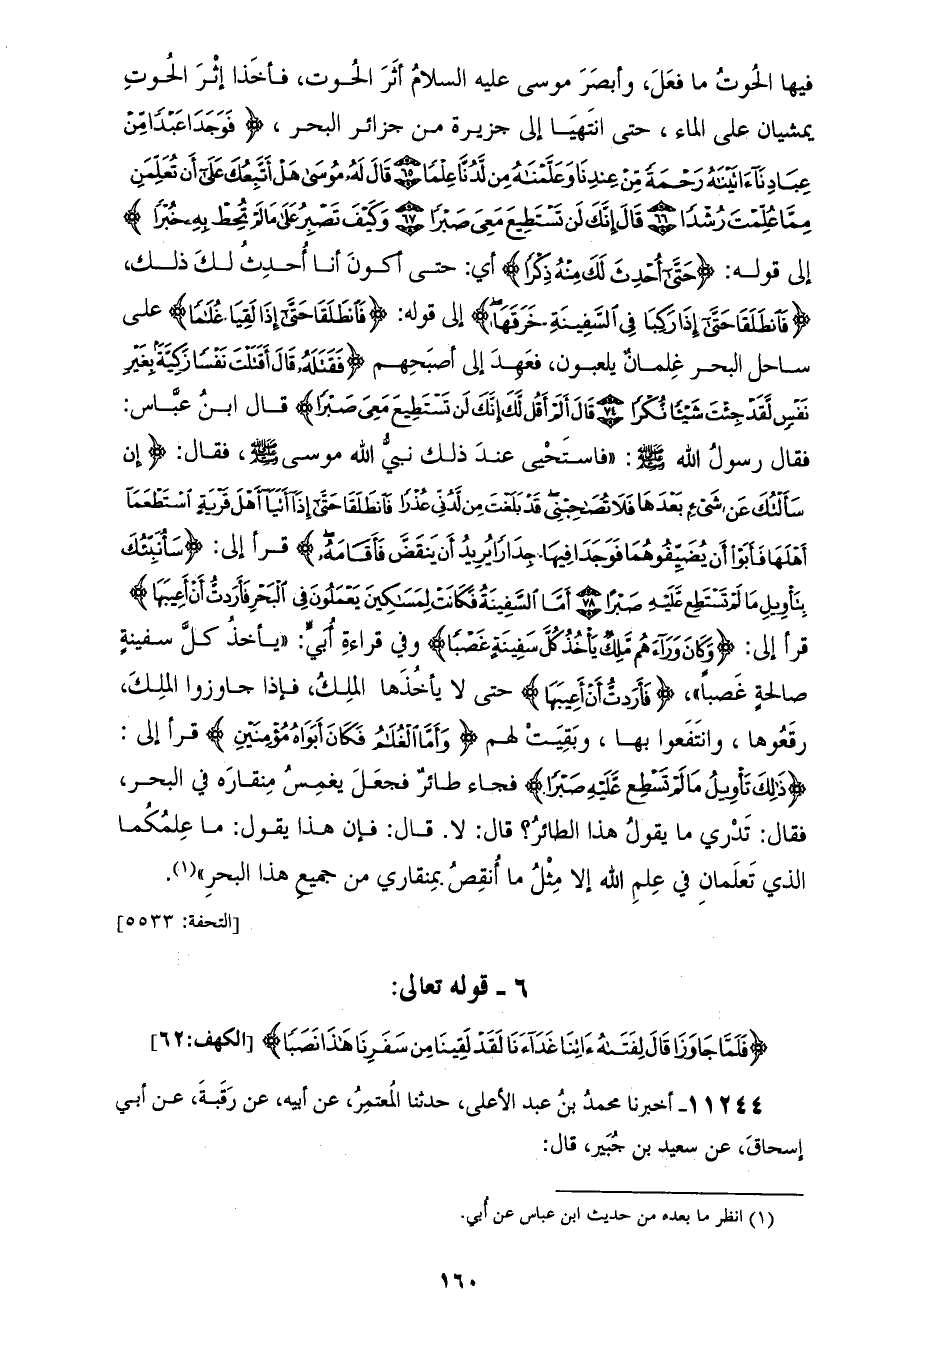 فيها الحُوتُ ما فعَلَ، وأبصَرَ موسى عليه السلامُ أثَرَ الحُوت، فأخَذا إثْرَ الحُوتِ
يمشيان على الماء ، حتى انتهَيَا إلى جزيرة من جزائر البحر ، ﴿ فَوَجَدَا عَبْدًا مِّنْ
عِبَادِنَآ ءَاتَيْنَٰهُ رَحْمَةً مِّنْ عِندِنَا وَعَلَّمْنَٰهُ مِن لَّدُنَّا عِلْمًا ۝٦٥ قَالَ لَهُۥ مُوسَىٰ هَلْ أَتَّبِعُكَ عَلَىٰٓ أَن تُعَلِّمَنِ
مِمَّا عُلِّمْتَ رُشْدًا ۝٦٦ قَالَ إِنَّكَ لَن تَسْتَطِيعَ مَعِىَ صَبْرًا ۝٦٧ وَكَيْفَ تَصْبِرُ عَلَىٰ مَا لَمْ تُحِطْ بِهِۦ خُبْرًا ﴾
إلى قوله: ﴿حَتَّىٰٓ أُحْدِثَ لَكَ مِنْهُ ذِكْرًا﴾ أي: حتى أكونَ أنا أُحدِثُ لكَ ذلك،
﴿فَٱنطَلَقَا حَتَّىٰٓ إِذَا رَكِبَا فِى ٱلسَّفِينَةِ خَرَقَهَا﴾ إلى قوله: ﴿فَٱنطَلَقَا حَتَّىٰٓ إِذَا لَقِيَا غُلَٰمًا﴾ على
ساحل البحر غِلمانٌ يلعبون، فعَهِدَ إلى أصبَحِهم ﴿فَقَتَلَهُۥ قَالَ أَقَتَلْتَ نَفْسًا زَكِيَّةًۢ بِغَيْرِ
نَفْسٍ لَّقَدْ جِئْتَ شَيْئًا نُّكْرًا ۝٧٤ قَالَ أَلَمْ أَقُل لَّكَ إِنَّكَ لَن تَسْتَطِيعَ مَعِىَ صَبْرًا﴾ قال ابنُ عبَّاس:
فقال رسولُ الله ﷺ : «فاستَحْيى عندَ ذلك نبيُّ الله موسى ﷺ ، فقال: ﴿ إِن
سَأَلْتُكَ عَن شَىْءٍۭ بَعْدَهَا فَلَا تُصَٰحِبْنِى قَدْ بَلَغْتَ مِن لَّدُنِّى عُذْرًا فَٱنطَلَقَا حَتَّىٰٓ إِذَآ أَتَيَآ أَهْلَ قَرْيَةٍ ٱسْتَطْعَمَآ
أَهْلَهَا فَأَبَوْا۟ أَن يُضَيِّفُوهُمَا فَوَجَدَا فِيهَا جِدَارًا يُرِيدُ أَن يَنقَضَّ فَأَقَامَهُۥ ﴾ قرأ إلى: ﴿سَأُنَبِّئُكَ
بِتَأْوِيلِ مَا لَمْ تَسْتَطِع عَّلَيْهِ صَبْرًا ۝٧٨ أَمَّا ٱلسَّفِينَةُ فَكَانَتْ لِمَسَٰكِينَ يَعْمَلُونَ فِى ٱلْبَحْرِ فَأَرَدتُّ أَنْ أَعِيبَهَا ﴾
قرأ إلى: ﴿وَكَانَ وَرَآءَهُم مَّلِكٌ يَأْخُذُ كُلَّ سَفِينَةٍ غَصْبًا﴾ وفي قراءةِ أُبيٍّ: «يأخذُ كلَّ سفينةٍ
صالحةٍ غَصباً»، ﴿ فَأَرَدتُّ أَنْ أَعِيبَهَا ﴾ حتى لا يأخُذَها الملِكُ، فإذا جاوزوا الملِكَ،
رقَعُوها ، وانتَفَعوا بها ، وبَقِيَتْ لهم ﴿ وَأَمَّا ٱلْغُلَٰمُ فَكَانَ أَبَوَاهُ مُؤْمِنَيْنِ ﴾ قرأ إلى :
﴿ذَٰلِكَ تَأْوِيلُ مَا لَمْ تَسْطِع عَّلَيْهِ صَبْرًا﴾ فجاء طائرٌ فجعَلَ يغمِسُ مِنقارَه في البحر،
فقال: تَدْري ما يقولُ هذا الطائرُ؟ قال: لا. قال: فإن هذا يقول: ما عِلمُكُما
الذي تَعلَمانِ في عِلمِ الله إلا مِثْلُ ما أُنقِصُ بمِنقاري من جميعِ هذا البحرِ»(١).
[التحفة: ٥٥٣٣]
٦ ـ قوله تعالى:
﴿فَلَمَّا جَاوَزَا قَالَ لِفَتَىٰهُ ءَاتِنَا غَدَآءَنَا لَقَدْ لَقِينَا مِن سَفَرِنَا هَٰذَا نَصَبًا﴾ [الكهف:٦٢]
١١٢٤٤ـ أخبرنا محمدُ بنُ عبد الأعلى، حدثنا المُعتمِرُ، عن أبيه، عن رَقَبةَ، عن أبي
إسحاقَ، عن سعيد بن جُبَير، قال:
(١) انظر ما بعده من حديث ابن عباس عن أُبي.
١٦٠